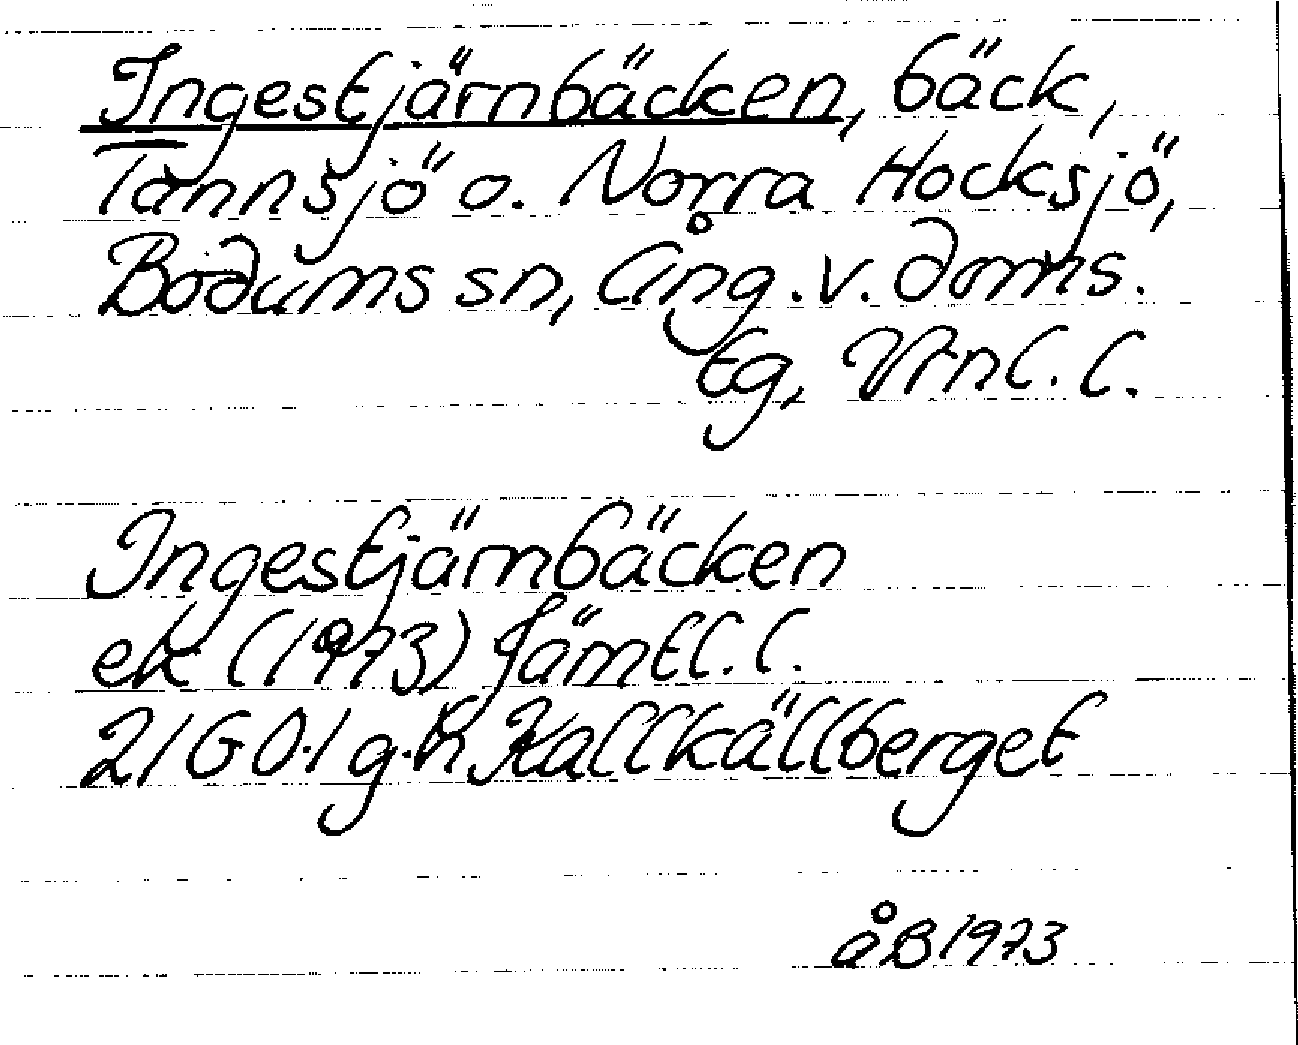 Ingestjärnbäcken, bäck,
Tannsjö o. Norra Hocksjö,
Bodums sn, Ång. v. doms.
tg, Vrnl. l.
Ingestjärnbäcken
ek (1973) Jämtl. l.
21G 0-1 g-h Kallkällberget
åB 1973